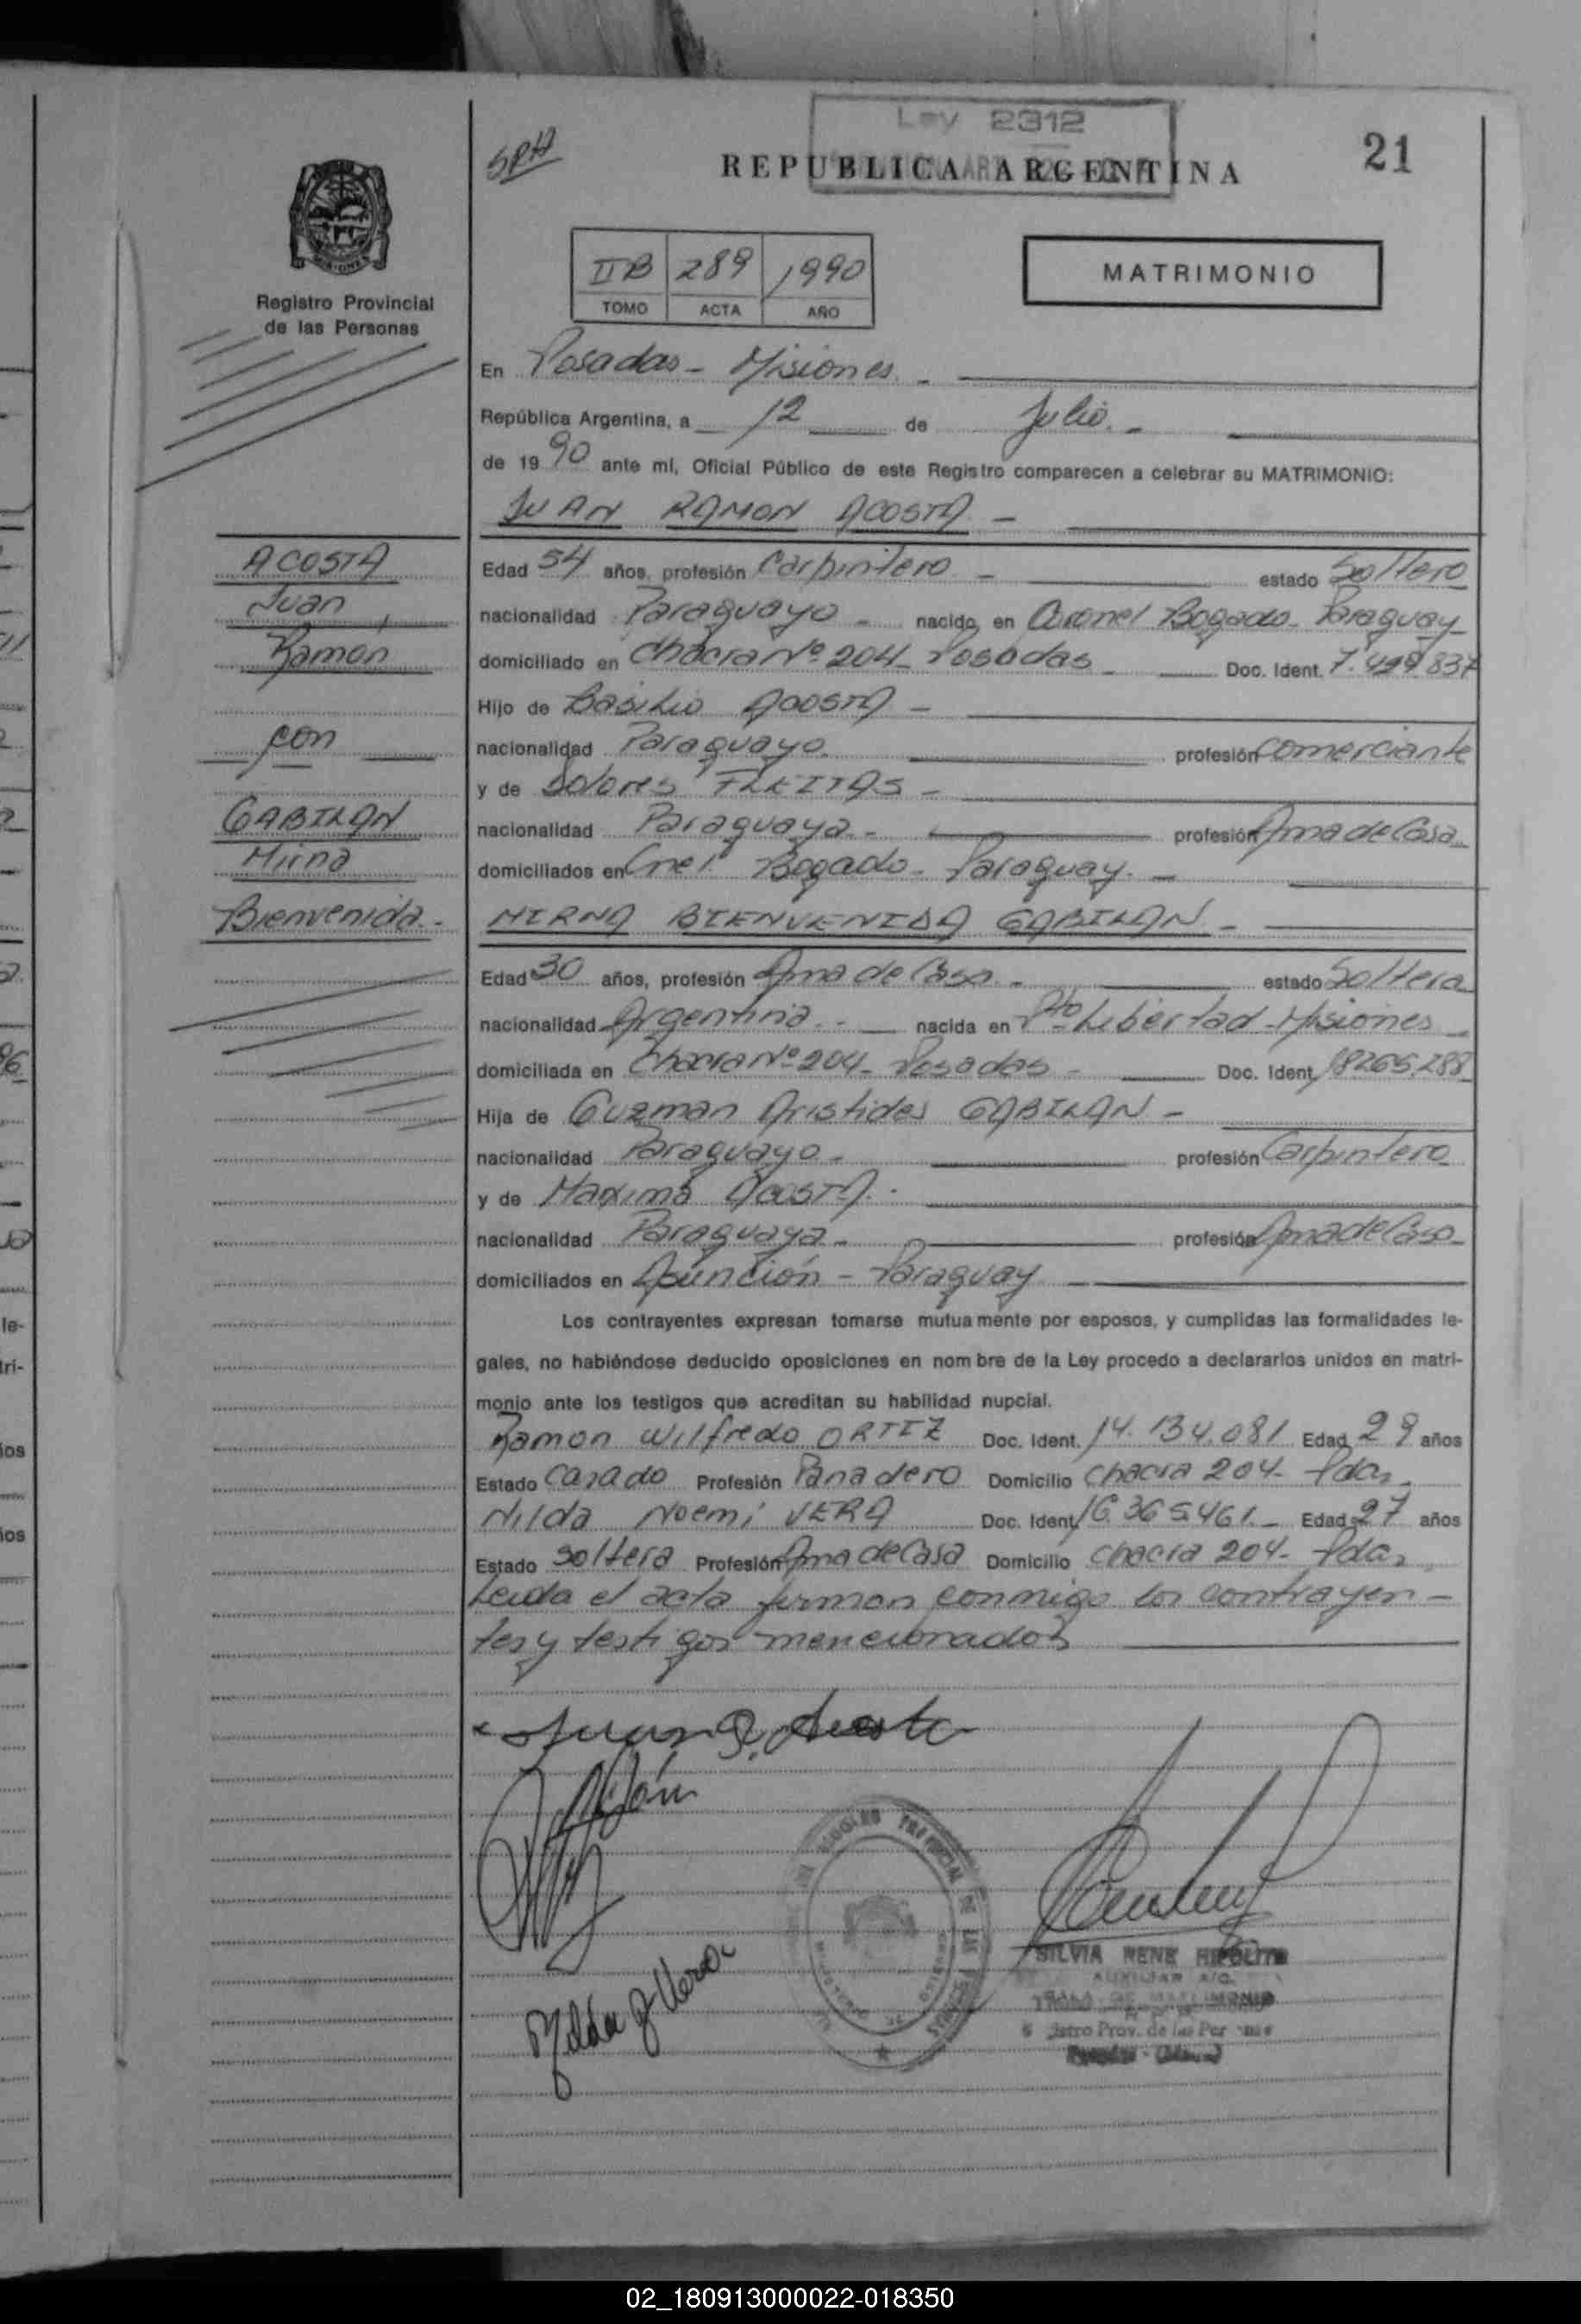 SRH
Ley 2312
REPUBLICA ARGENTINA
21
Registro Provincial
de las Personas
IIB 289 1990
TOMO ACTA AÑO
MATRIMONIO
En Posadas - Misiones. -
República Argentina, a 12 de Julio. -
de 1990 ante mí, Oficial Público de este Registro comparecen a celebrar su MATRIMONIO:
JUAN RAMON ACOSTA -
ACOSTA
Juan
Ramón
con
GABILAN
Mirna
Bienvenida. -
Edad 54 años, profesión Carpintero - estado Soltero
nacionalidad Paraguayo - nacido en Coronel Bogado - Paraguay
domiciliado en Chacra Nº 204 - Posadas Doc. Ident. 7.499.837
Hijo de Basilio ACOSTA -
nacionalidad Paraguayo. profesión Comerciante
y de Dolores FLEITAS -
nacionalidad Paraguaya - profesión Ama de Casa
domiciliados en Cnel. Bogado - Paraguay. -
MIRNA BIENVENIDA GABILAN -
Edad 30 años, profesión Ama de Casa. - estado Soltera
nacionalidad Argentina. - nacida en Pto Libertad - Misiones
domiciliada en Chacra Nº 204 - Posadas - Doc. Ident. 18265.288
Hija de Guzman Aristides GABILAN -
nacionalidad Paraguayo - profesión Carpintero
y de Maxima ACOSTA. -
nacionalidad Paraguaya - profesión Ama de Casa
domiciliados en Asunción - Paraguay
Los contrayentes expresan tomarse mutuamente por esposos, y cumplidas las formalidades le-
gales, no habiéndose deducido oposiciones en nombre de la Ley procedo a declararlos unidos en matri-
monio ante los testigos que acreditan su habilidad nupcial.
Ramon Wilfredo ORTIZ Doc. Ident. 14.134.081 Edad 29 años
Estado Casado Profesión Panadero Domicilio Chacra 204 - Pdas.
Nilda Noemí VERA Doc. Ident. 16.365.461. - Edad 27 años
Estado Soltera Profesión Ama de Casa Domicilio Chacra 204 - Pdas
Leida el acta firman conmigo los contrayen-
tes y testigos mencionados
Juan R. Acosta
Nilda N. Vera
SILVIA RENE HIPOLITO
AUXILIAR A/C.
SALA DE MATRIMONIO
Prov. de las Personas
02_180913000022-018350